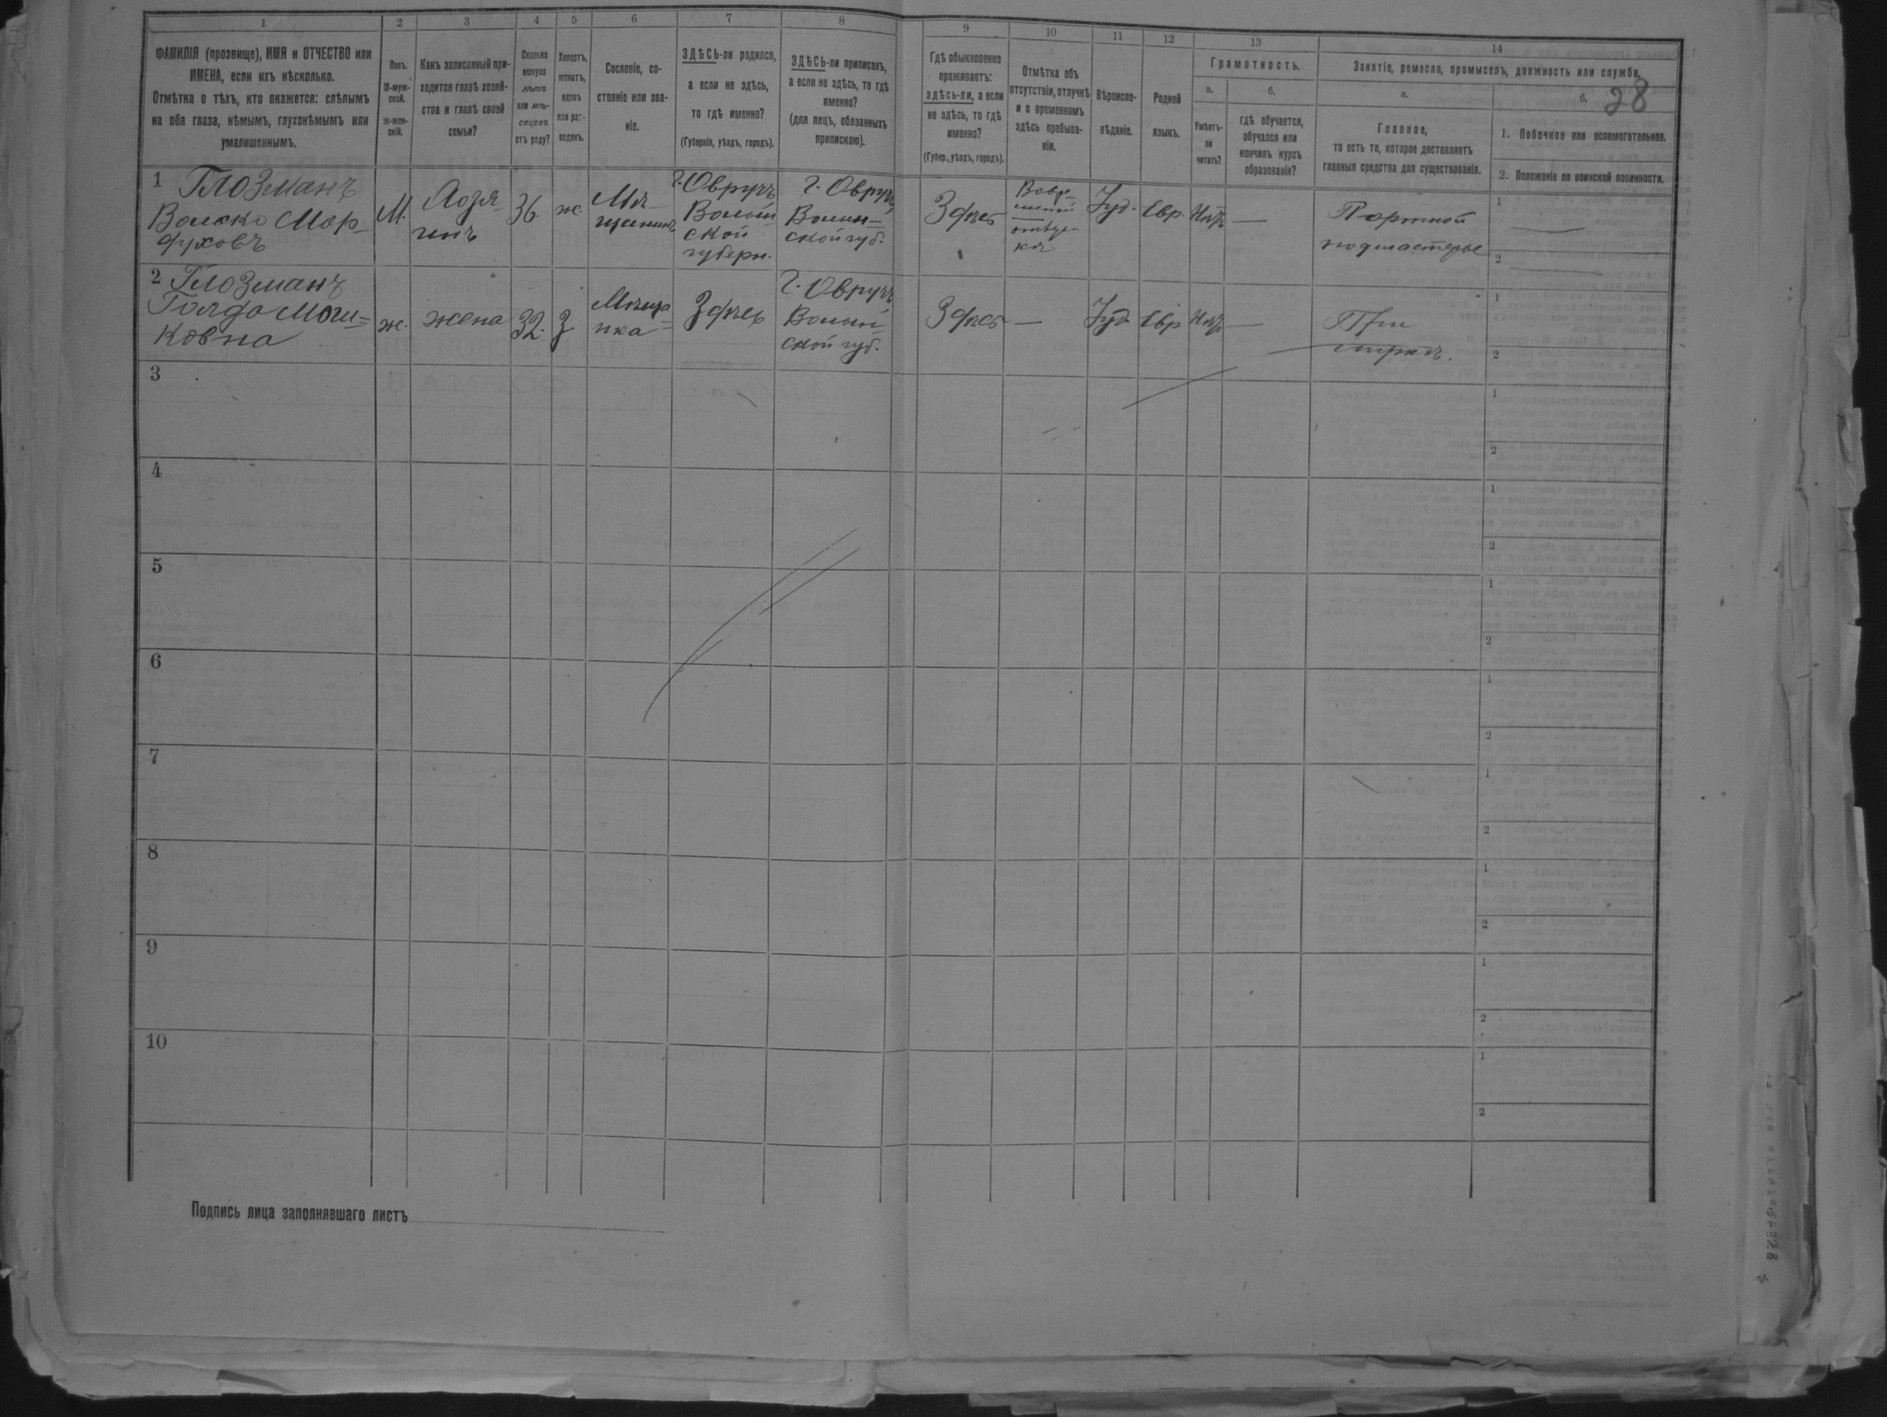 1 2 3 4 5 6 7 8 9 10 11 12 13 14
28
ФАМИЛІЯ (прозвище), ИМЯ и ОТЧЕСТВО или
ИМЕНА, если ихъ нѣсколько.
Отмѣтка о тѣхъ, кто окажется: слѣпымъ
на оба глаза, нѣмымъ, глухонѣмымъ или
умалишеннымъ.
Полъ.
М-муж-
ской.
ж-жен-
скій.
Какъ записанный при-
ходится главѣ хозяй-
ства и главѣ своей
семьи?
Сколько
минуло
лѣтъ
или мѣ-
сяцевъ
отъ роду?
Холостъ,
женатъ,
вдовъ
или раз-
веденъ.
Сословіе, со-
стояніе или зва-
ніе.
ЗДѢСЬ-ли родился,
а если не здѣсь,
то гдѣ именно?
(Губернія, уѣздъ, городъ).
ЗДѢСЬ-ли приписанъ,
а если не здѣсь, то гдѣ
именно?
(для лицъ, обязанныхъ
припискою).
Гдѣ обыкновенно
проживаетъ:
здѣсь-ли, а если
не здѣсь, то гдѣ
именно?
(Губер., уѣздъ, городъ).
Отмѣтка объ
отсутствіи, отлучкѣ
и о временномъ
здѣсь пребыва-
ніи.
Вѣроиспо-
вѣданіе.
Родной
языкъ.
Грамотность.
а.
Умѣетъ-
ли
читать?
б.
гдѣ обучается,
обучался или
кончилъ курсъ
образованія?
Занятіе, ремесло, промыселъ, должность или служба.
а.
Главное,
то есть то, которое доставляетъ
главныя средства для существованія.
б.
1. Побочное или вспомогательное.
2. Положеніе по воинской повинности.
1 Глозманъ
Волько Мор-
духовъ
М.
Хозя-
инъ
36
ж.
Мѣ-
щанинъ
г. Овручъ
Волын
ской
губерн.
г. Овручъ
Волын=
ской губ.
Здѣсь
Іуд.
Евр.
Нѣтъ
—
Портной
подмастерье
1
2
2 Глозманъ
Голда Мош=
ковна
ж.
жена
32.
З
Мѣща
нка
Здѣсь
г. Овручъ
Волын=
ской губ.
Здѣсь
—
Іуд
Евр
Нѣтъ
—
При
мужѣ.
1
2
3
1
2
4
1
2
5
1
2
6
1
2
7
1
2
8
1
2
9
1
2
10
1
2
Подпись лица заполнявшаго листъ